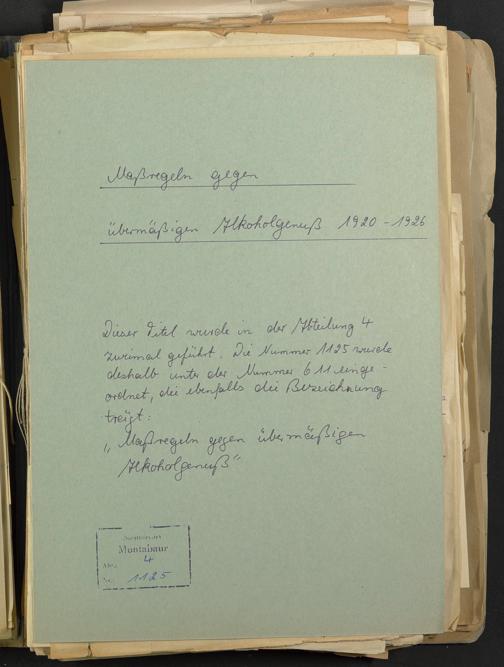 Maßregeln gegen
übermäßigen Alkoholgenuß 1920 - 1926
Dieser Titel wurde in der Abteilung 4
zweimal geführt. Die Nummer 1125 wurde
deshalb unter der Nummer 611 einge-
ordnet, die ebenfalls die Bezeichnung
trägt:
„Maßregeln gegen übermäßigen
Alkoholgenuß"
Montabaur
Abt. 4
Nr. 1125